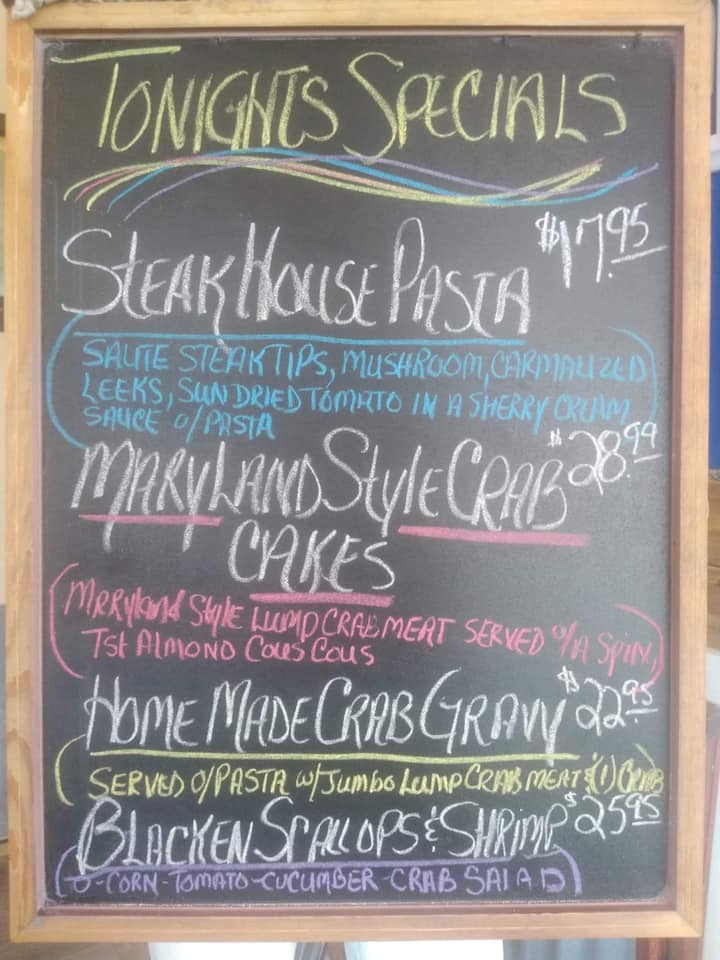 TONIGHTS SPECIALS
STEAK HOUSE PASTA $17.95
SAUTE STEAK TIPS, MUSHROOM, CARMALIZED
LEEKS, SUN DRIED TOMATO IN A SHERRY CREAM
SAUCE O/PASTA
MARYLAND STYLE CRAB $28.99
CAKES
MARYLAND STYLE LUMP CRABMEAT SERVED O/A SPIN,
TST ALMOND COUS COUS
HOME MADE CRAB GRAVY $22.95
SERVED O/PASTA W/JUMBO LUMP CRABMEAT & (1) CRAB
BLACKEN SCALLOPS & SHRIMP $25.95
O-CORN-TOMATO-CUCUMBER-CRAB SALAD